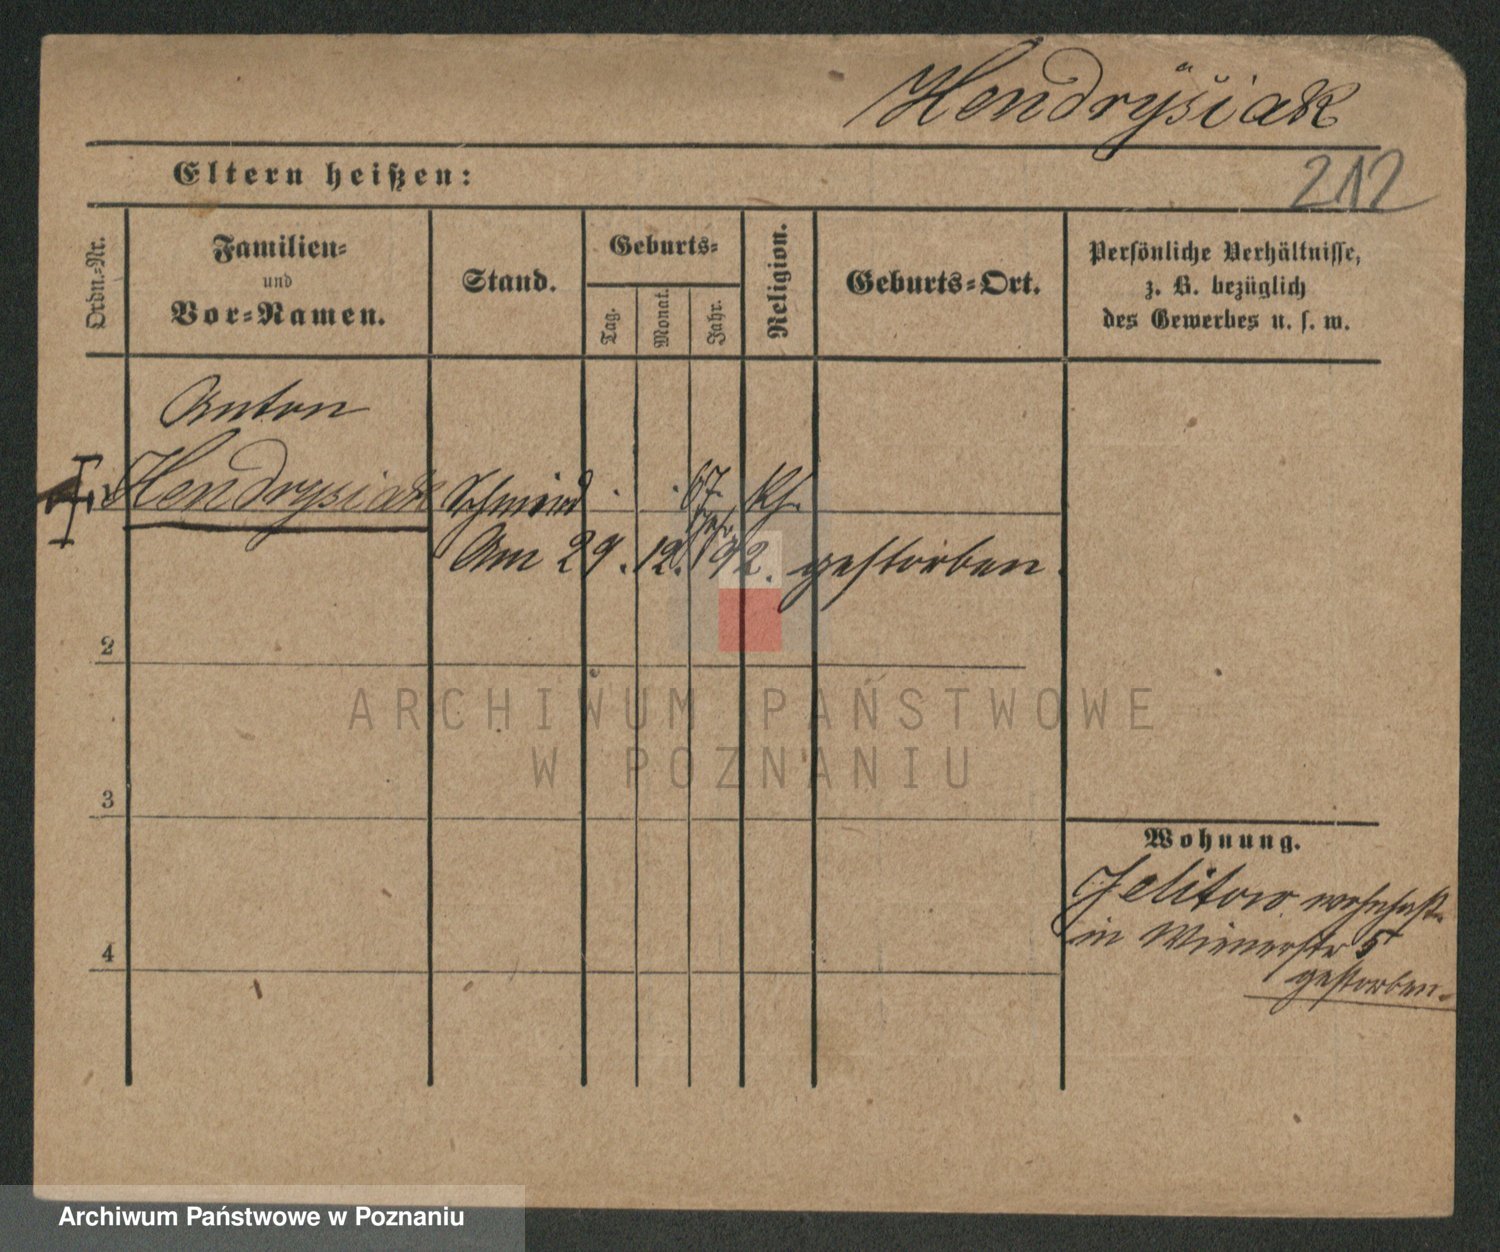 Hendrÿsiak
212
Eltern heißen:
Ordn.-Nr.
Familien-
und
Vor-Namen.
Stand.
Geburts-
Tag.
Monat.
Jahr.
Religion.
Geburts-Ort.
Persönliche Verhältnisse,
z. B. bezüglich
des Gewerbes u. s. w.
Anton
Hendrysiak Schmied 67 Kh.
Am 29. 12. 92. gestorben.
2
ARCHIWUM PAŃSTWOWE
W POZNANIU
3
Wohnung.
Jelitow wohnhaft
in Wienerstr 5
gestorben.
4
Archiwum Państwowe w Poznaniu